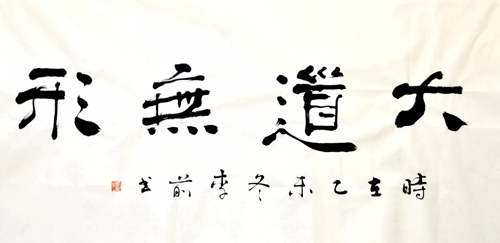 大道無形
時在乙未冬李前书